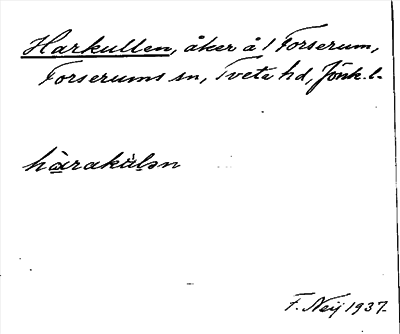 Harkullen, åker å 1 Forserum,
Forserums sn, Tveta hd, Jönk. l.
hàrakùlən
F. Neij 1937.